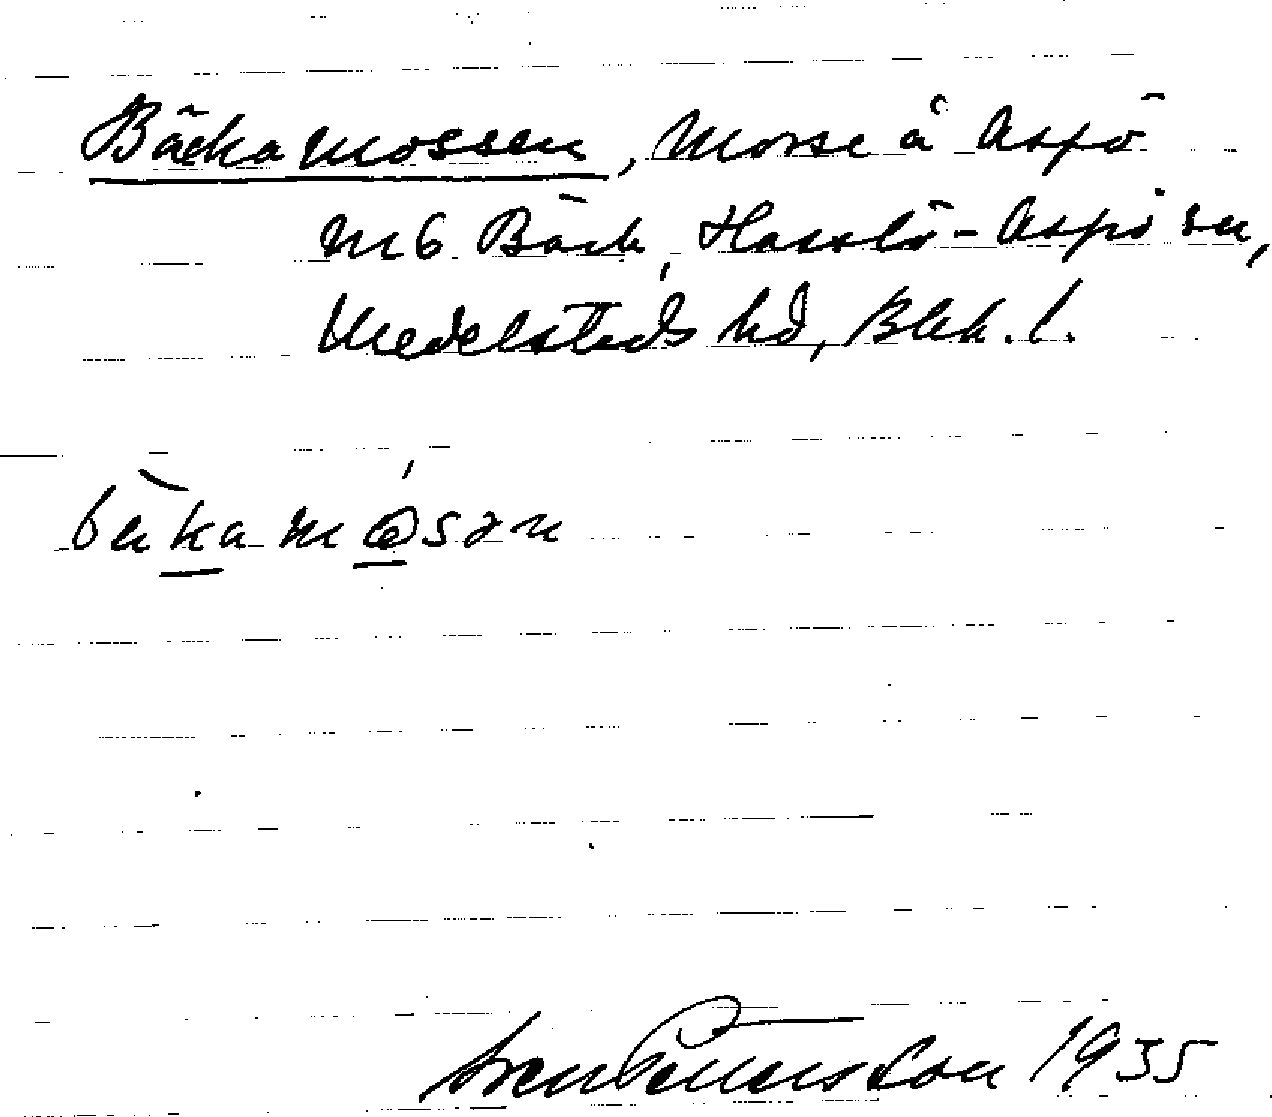 Bäckamossen, Mosse å Aspö
m 6 Bäck, Hasslö-Aspö sn,
Medelsteds hd, Blek. l.
bækamåsən
1935